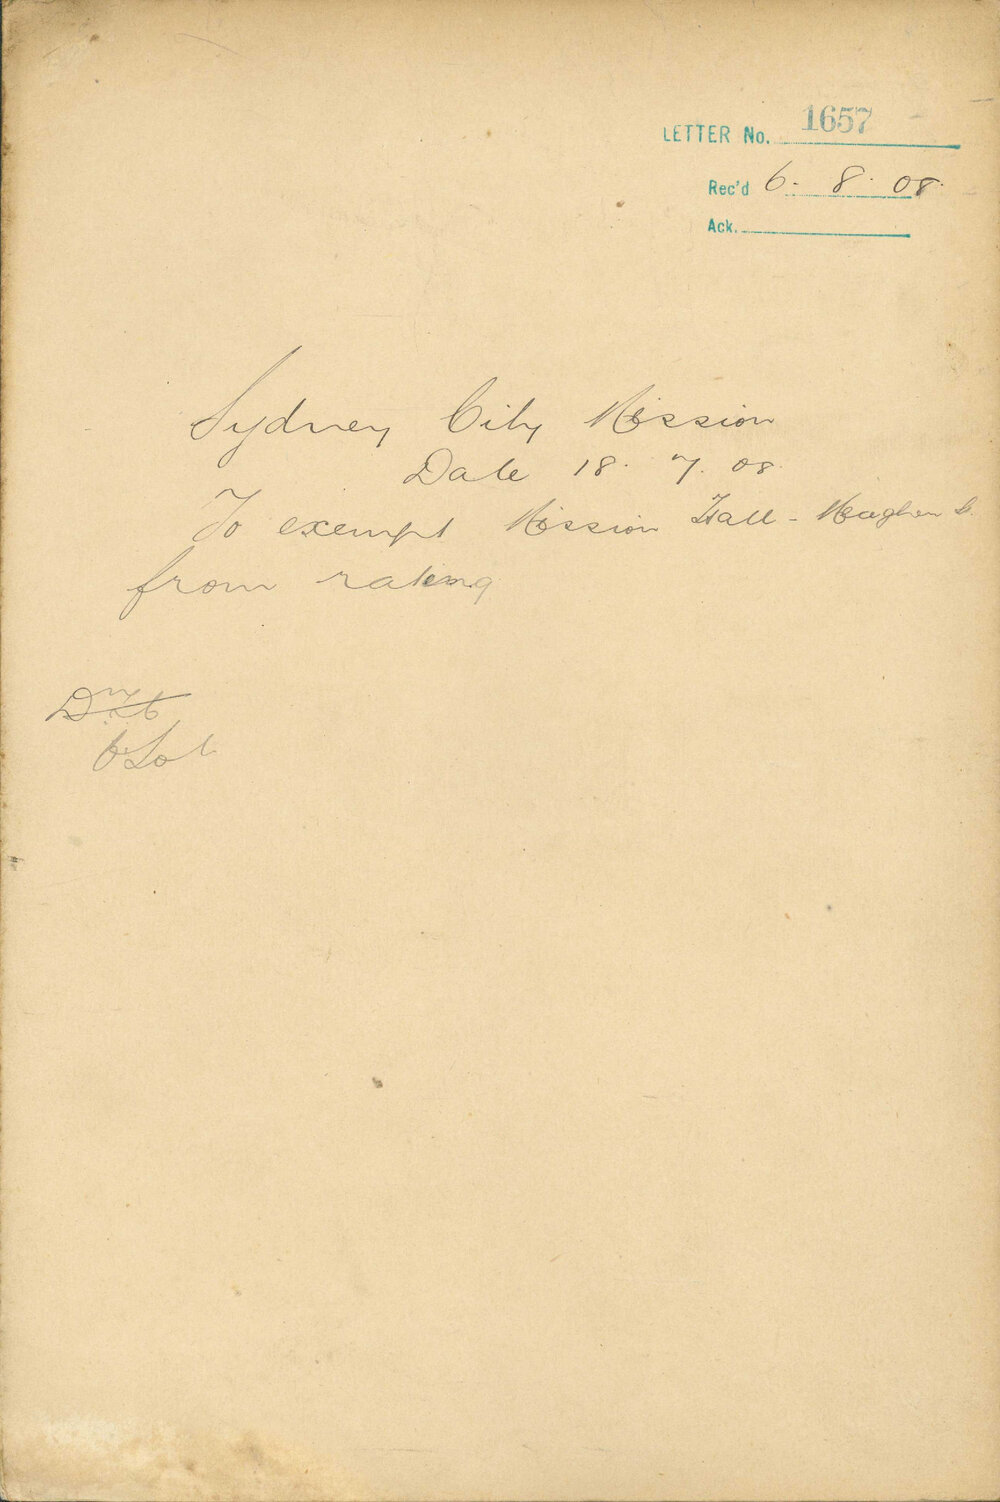 LETTER No. 1657
Rec'd 6. 8. 08.
Ack.
Sydney City Mission
Date 18. 7. 08.
To exempt Mission Hall - Meagher
from rating